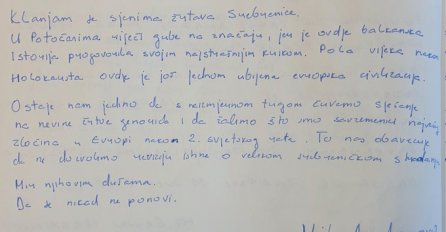 Klanjam se sjenima žrtava Srebrenice.
U Potočarima riječi gube na značaju, jer je ovdje balkanska
istorija progovorila svojim najstrašnijim krikom. Pola vijeka nakon
Holokausta ovdje je još jednom ubijena evropska civilizacija.
Ostaje nam jedino da s neizmjernom tugom čuvamo sjećanje
na nevine žrtve genocida i da žalimo što smo savremenici najvećeg
zločina u Evropi nakon 2. svjetskog rata. To nas obavezuje
da ne dozvolimo reviziju istine o velikom srebreničkom stradanju
Mir njihovim dušama.
Da se nikad ne ponovi.